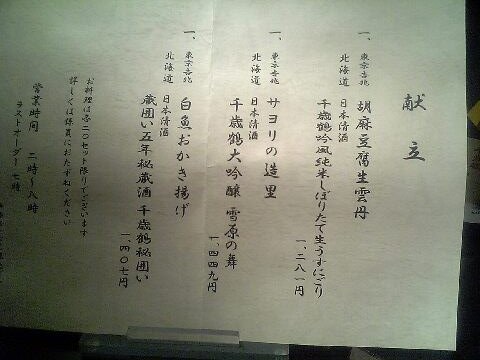 献立
一、東京吉兆 胡麻豆腐生雲丹
北海道 日本清酒 千歳鶴吟風純米しぼりたて生うすにごり
一、二八一円
一、東京吉兆 サヨリの造里
北海道 日本清酒 千歳鶴大吟醸 雪原の舞
一、四四九円
一、東京吉兆 白魚おかき揚げ
北海道 日本清酒 蔵囲い五年秘蔵酒 千歳鶴秘囲い
一、四〇七円
お料理は各二〇セット限りでございます
詳しくは係員におたずねください
営業時間 二時〜八時
ラストオーダー七時